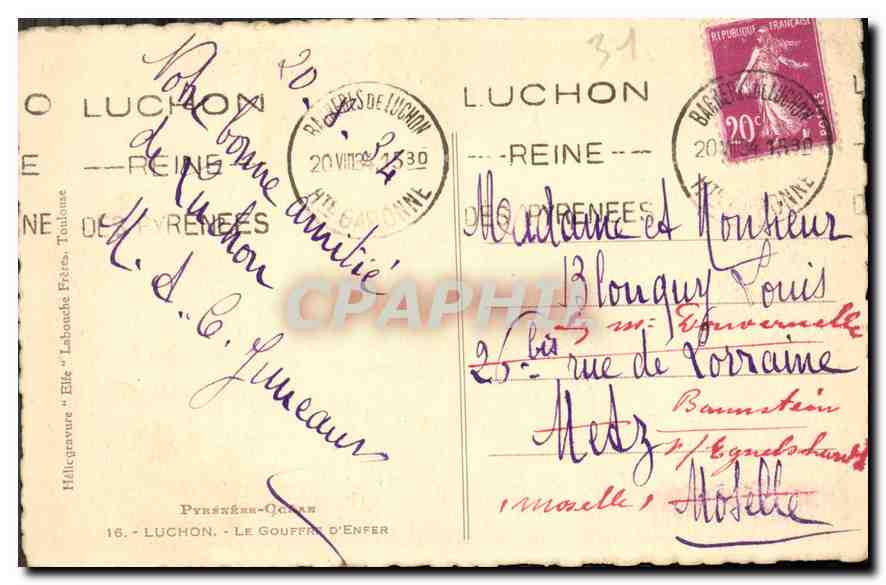 31
20. 8. 34
Votre bonne amitié
de Luchon
M. A. C. Juneaux
O LUCHON
E REINE
NE DES PYRENEES
BAGNERES DE LUCHON
20 VIII 34 15 30
HTE GARONNE
LUCHON
REINE
DES PYRENEES
BAGNERES DE LUCHON
20 VIII 34 15 30
HTE GARONNE
REPUBLIQUE FRANÇAISE
20c
POSTES
Madame et Monsieur
Blouquy Louis
26 bis rue de Lorraine
Metz
Moselle
Bannstein
(Moselle)
Héliogravure "Elfe" Labouche Frères, Toulouse
PYRÉNÉES-OCÉAN
16. - LUCHON. - LE GOUFFRE D'ENFER
CPAPHIL